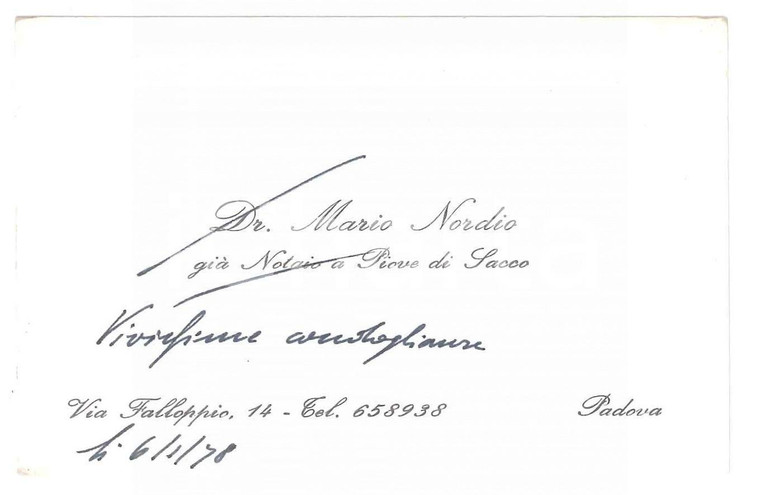 Dr. Mario Nordio
già Notaio a Piove di Sacco
Vivissime condoglianze
Via Falloppio, 14 - Tel. 658938 Padova
lì 6/1/78